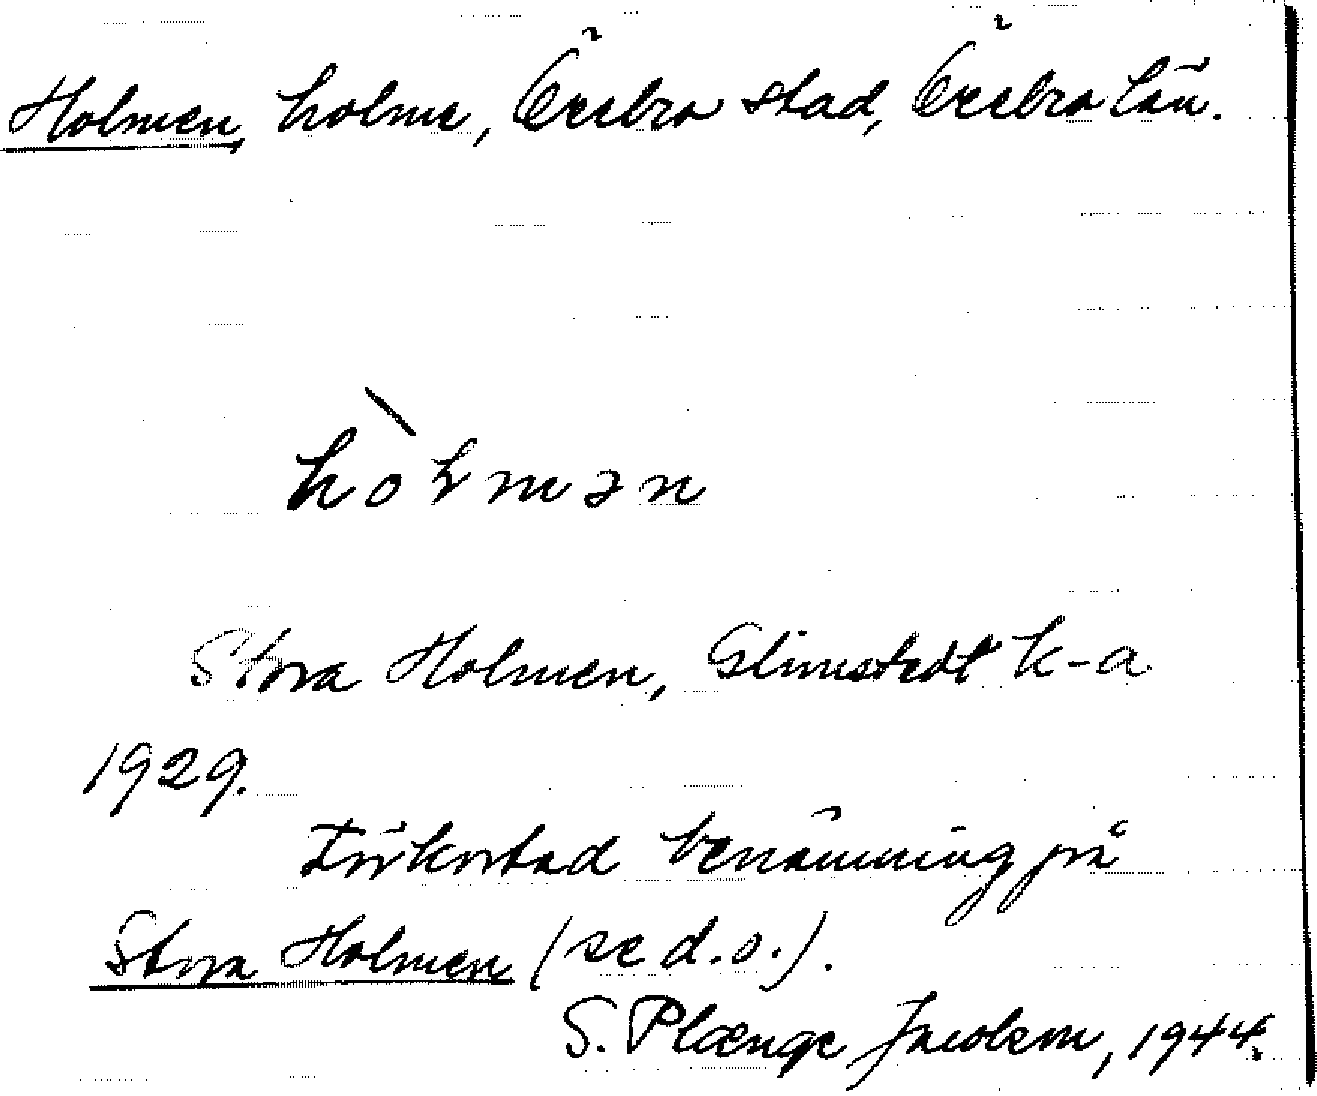 Holmen, holme, Örebro stad, Örebro län.
hòłmən
Stora Holmen, Glimstedt k-a
1929.
Förkortad benämning på
Stora Holmen (se d.o.).
S. Plænge Jacobson, 1944.